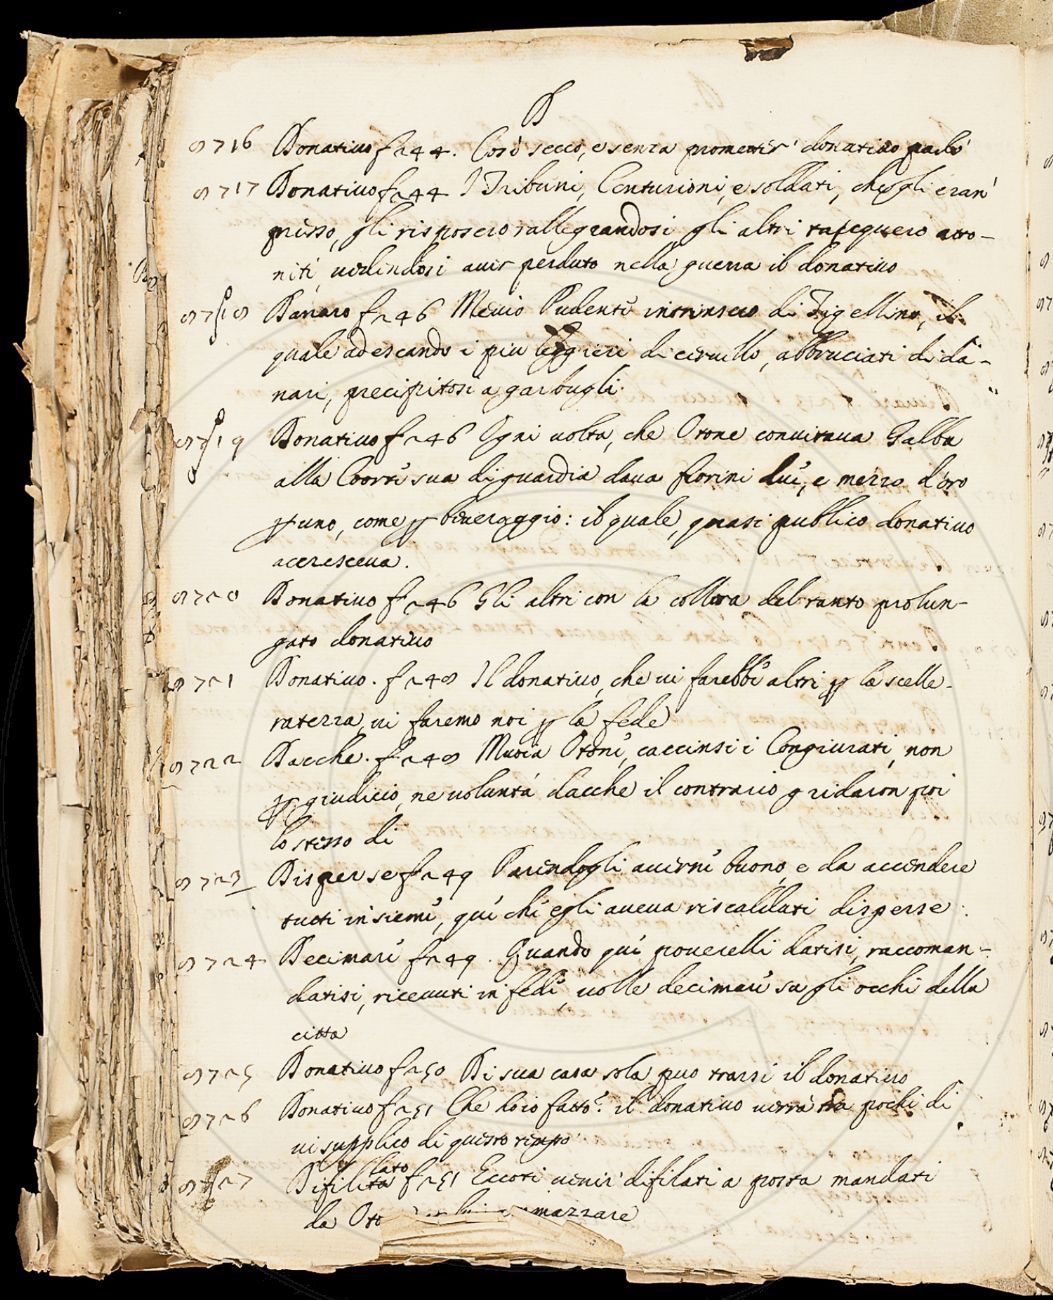 D
8716 Donativo f 244. Così secco, e senza prometter donativo parlò
8717 Donativo f 244 I Tribuni, Centurioni, e soldati, che gli eran'
presso, gli risposero rallegrandosi gli altri tacquero atto-
niti, vedendosi aver perduto nella guerra il donativo
8718 Danaro f 246 Mevio Pudente intrinseco di Tigellino, il
quale adescando i più leggieri di cervello, abbruciati di da-
nari, precipitosi a garbugli.
8719 Donativo f 246 Ogni volta, che Otone convitava Galba
alla Coorte sua di guardia dava fiorini due, e mezzo d'oro
p uno, come p beveraggio: il quale, quasi publico donativo
accresceva.
8720 Donativo f 246 Gli altri con la collera del tanto prolun-
gato donativo
8721 Donativo. f 248 Il donativo, che vi farebbe altri p la scelle-
ratezza, vi faremo noi p la fede
8722 Dacche. f 248 Muoia Otone, caccinsi i Congiurati, non
p giudicio, ne volontà dacche il contrario gridaron poi
lo stesso di
8723 Disperse f 249 Parendogli averne buono, e da accendere
tutti insieme, que che egli aveva riscaldati disperse.
8724 Decimare f 249. Quando que poverelli datisi, raccoman-
datisi, ricevuti in fede, volle decimare su gli occhi della
citta
8725 Donativo f 250 Di sua casa sola puo trarsi il donativo
8726 Donativo f 251 Che do io fatto? il donativo verrà tra pochi di
vi supplico di questo tempo
8727 Difilato f 251 Eccoti venir difilati a posta mandati
da Oto mazzare